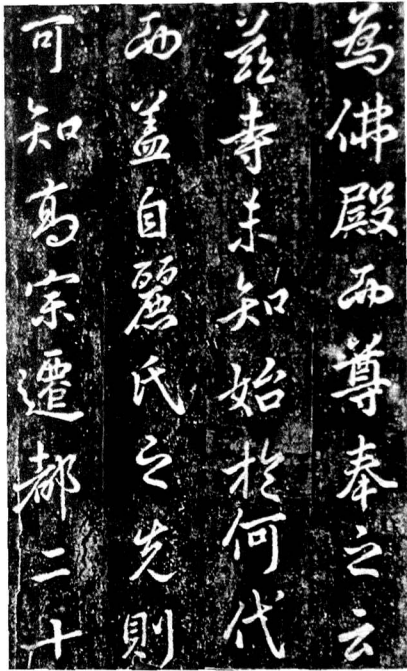 為佛殿而尊奉之云
茲寺未知始於何代
而盖自麗氏之先則
可知高宗遷都二十